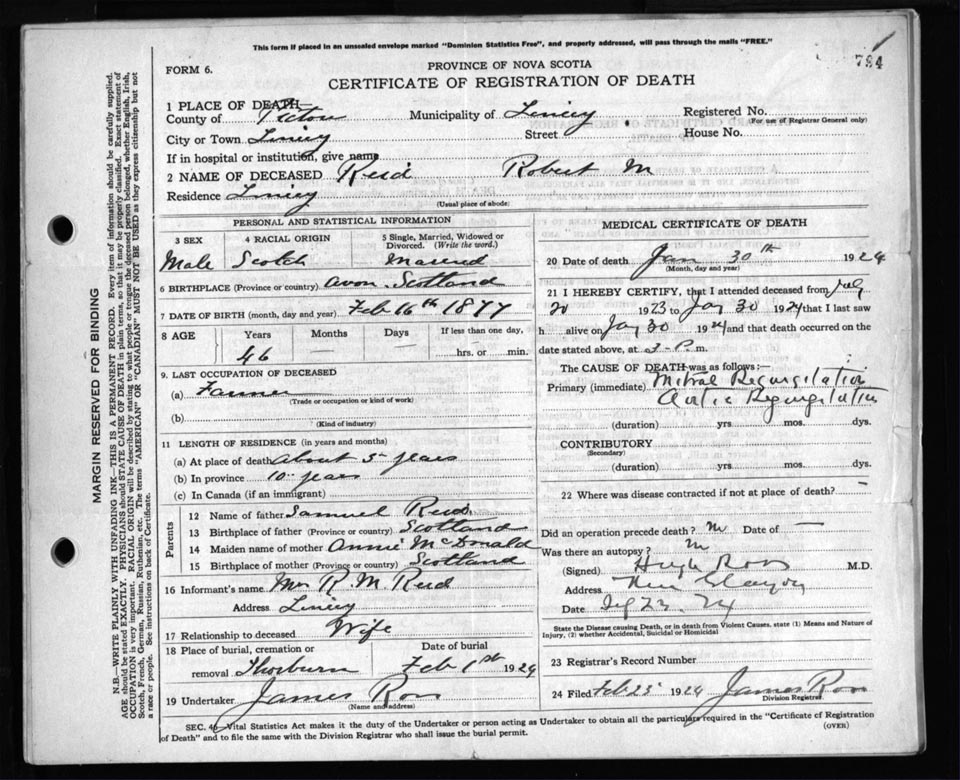 This form if placed in an unsealed envelope marked "Dominion Statistics Free", and properly addressed, will pass through the mails "FREE."
784
FORM 6.
PROVINCE OF NOVA SCOTIA
CERTIFICATE OF REGISTRATION OF DEATH
1 PLACE OF DEATH—
County of Pictou Municipality of Registered No.
(For use of Registrar General only)
City or Town Street House No.
If in hospital or institution, give name
2 NAME OF DECEASED Reid Robert M
Residence
(Usual place of abode)
PERSONAL AND STATISTICAL INFORMATION
3 SEX 4 RACIAL ORIGIN 5 Single, Married, Widowed or Divorced. (Write the word.)
Male Scotch Married
6 BIRTHPLACE (Province or country) Avon Scotland
7 DATE OF BIRTH (month, day and year) Feb 16th 1877
8 AGE Years Months Days If less than one day,
46 hrs. or min.
9. LAST OCCUPATION OF DECEASED
(a) Farmer
(Trade or occupation or kind of work)
(b)
(Kind of industry)
11 LENGTH OF RESIDENCE (in years and months)
(a) At place of death About 5 years
(b) In province 10 years
(c) In Canada (if an immigrant)
Parents
12 Name of father Samuel Reid
13 Birthplace of father (Province or country) Scotland
14 Maiden name of mother Annie McDonald
15 Birthplace of mother (Province or country) Scotland
16 Informant's name Mrs R. M. Reid
Address
17 Relationship to deceased Wife
18 Place of burial, cremation or removal Thorburn
Date of burial Feb 1st 1924
19 Undertaker James Ross
(Name and address)
MEDICAL CERTIFICATE OF DEATH
20 Date of death Jan 30th 1924
(Month, day and year)
21 I HEREBY CERTIFY, that I attended deceased from July
20 1923 to Jany 30 1924 that I last saw
h alive on Jany 30 1924 and that death occurred on
date stated above, at 3 P. m.
The CAUSE OF DEATH was as follows:—
Primary (immediate) Mitral Regurgitation
Aortic Regurgitation
(duration) yrs mos. dys.
CONTRIBUTORY
(Secondary)
(duration) yrs. mos. dys.
22 Where was disease contracted if not at place of death? —
Did an operation precede death? No Date of —
Was there an autopsy? No
(Signed) Hugh Ross M.D.
Address New Glasgow
Date 23. 24
State the Disease causing Death, or in death from Violent Causes, state (1) Means and Nature of Injury, (2) whether Accidental, Suicidal or Homicidal
23 Registrar's Record Number
24 Filed Feb 25 1924 James Ross
Division Registrar
SEC. Vital Statistics Act makes it the duty of the Undertaker or person acting as Undertaker to obtain all the particulars required in the "Certificate of Registration
of Death" and to file the same with the Division Registrar who shall issue the burial permit.
(OVER)
MARGIN RESERVED FOR BINDING
N.B.—WRITE PLAINLY WITH UNFADING INK—THIS IS A PERMANENT RECORD. Every item of information should be carefully supplied.
AGE should be stated EXACTLY. PHYSICIANS should STATE CAUSE OF DEATH in plain terms, so that it may be properly classified. Exact statement of
OCCUPATION is very important. RACIAL ORIGIN will be described by stating to what people or tongue the deceased person belonged, whether English, Irish,
Scotch, French, German, Russian, Ruthenian, etc. The terms "AMERICAN" OR "CANADIAN" MUST NOT BE USED as they express citizenship but not
a race or people. See instructions on back of Certificate.